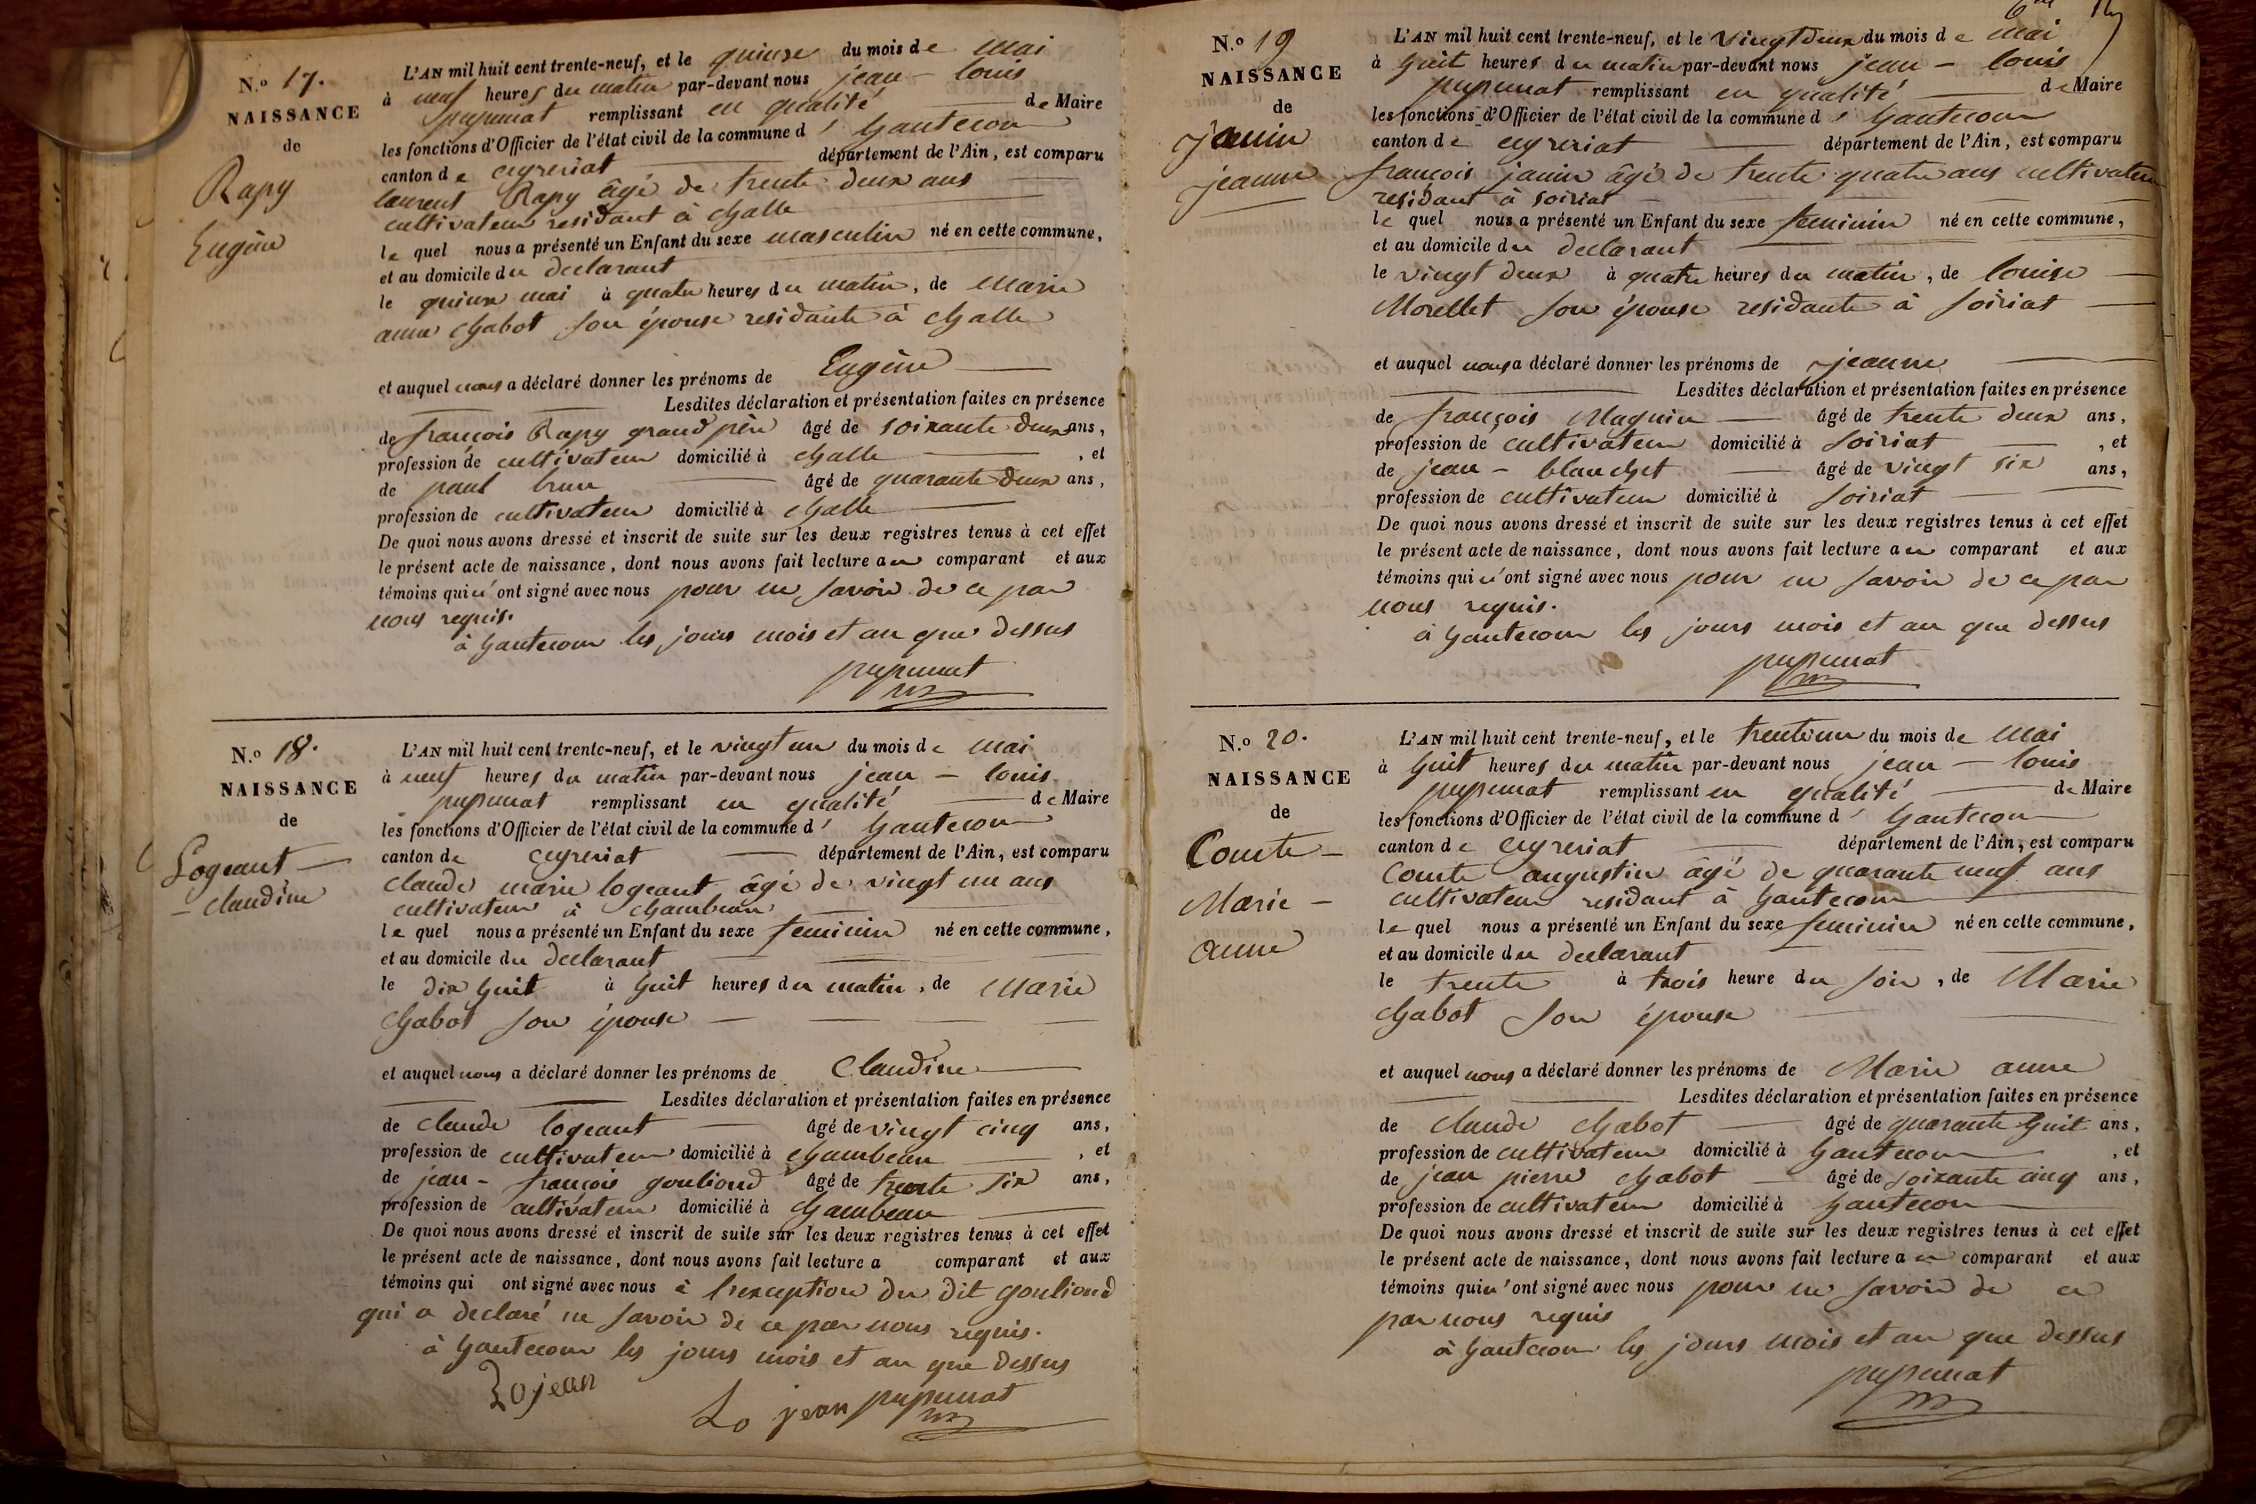 N.º 17.
NAISSANCE
de
Rapy
Eugène
L'AN mil huit cent trente-neuf, et le quinze du mois de mai
à neuf heures du matin par-devant nous jean - louis
pupunat remplissant en qualité de Maire
les fonctions d'Officier de l'état civil de la commune d' hautecour
canton de ceyzeriat département de l'Ain, est comparu
laurent Rapy âgé de trente deux ans
cultivateur residant à challe
le quel nous a présenté un Enfant du sexe masculin né en cette commune,
et au domicile du declarant
le quinze mai à quatre heures du matin, de marie
anne chabot son épouse residante à challe
et auquel nous a déclaré donner les prénoms de Eugène
Lesdites déclaration et présentation faites en présence
de françois Rapy grand père âgé de soixante deux ans,
profession de cultivateur domicilié à challe , et
de paul brun âgé de quarante deux ans,
profession de cultivateur domicilié à challe
De quoi nous avons dressé et inscrit de suite sur les deux registres tenus à cet effet
le présent acte de naissance, dont nous avons fait lecture au comparant et aux
témoins qui n'ont signé avec nous pour ne savoir de ce par
nous requis.
à hautecour les jours mois et an que dessus
pupunat
N.º 18.
NAISSANCE
de
Logeant
- claudine
L'AN mil huit cent trente-neuf, et le vingt un du mois de mai
à neuf heures du matin par-devant nous jean - louis
pupunat remplissant en qualité de Maire
les fonctions d'Officier de l'état civil de la commune d' hautecour
canton de ceyzeriat département de l'Ain, est comparu
claude marie logeant âgé de vingt un ans
cultivateur à chambeau
le quel nous a présenté un Enfant du sexe feminin né en cette commune,
et au domicile du declarant
le dix huit à huit heures du matin, de marie
chabot son épouse
et auquel nous a déclaré donner les prénoms de Claudine
Lesdites déclaration et présentation faites en présence
de claude logeant âgé de vingt cinq ans,
profession de cultivateur domicilié à chambeau , et
de jean - françois gouliond âgé de trente six ans,
profession de cultivateur domicilié à chambeau
De quoi nous avons dressé et inscrit de suite sur les deux registres tenus à cet effet
le présent acte de naissance, dont nous avons fait lecture a comparant et aux
témoins qui ont signé avec nous à l'exception du dit gouliond
qui a declaré ne savoir de ce par nous requis.
à hautecour les jours mois et an que dessus
Lojean
Lo jean pupunat
N.º 19
NAISSANCE
de
Janin
jeanne
L'AN mil huit cent trente-neuf, et le vingt deux du mois de mai
à huit heures du matin par-devant nous jean - louis
pupunat remplissant en qualité de Maire
les fonctions d'Officier de l'état civil de la commune d' hautecour
canton de ceyzeriat département de l'Ain, est comparu
françois janin âgé de trente quatre ans cultivateur
residant à soiriat
le quel nous a présenté un Enfant du sexe feminin né en cette commune,
et au domicile du declarant
le vingt deux à quatre heures du matin, de louise
Morellet son épouse residante à soiriat
et auquel nous a déclaré donner les prénoms de jeanne
Lesdites déclaration et présentation faites en présence
de françois Maguin âgé de trente deux ans,
profession de cultivateur domicilié à soiriat , et
de jean - blanchet âgé de vingt six ans,
profession de cultivateur domicilié à soiriat
De quoi nous avons dressé et inscrit de suite sur les deux registres tenus à cet effet
le présent acte de naissance, dont nous avons fait lecture au comparant et aux
témoins qui n'ont signé avec nous pour ne savoir de ce par
nous requis.
à hautecour les jours mois et an que dessus
pupunat
N.º 20.
NAISSANCE
de
Comte -
Marie -
anne
L'AN mil huit cent trente-neuf, et le trente un du mois de mai
à huit heures du matin par-devant nous jean - louis
pupunat remplissant en qualité de Maire
les fonctions d'Officier de l'état civil de la commune d' hautecour
canton de ceyzeriat département de l'Ain, est comparu
Comte augustin âgé de quarante neuf ans
cultivateur residant à hautecour
le quel nous a présenté un Enfant du sexe feminin né en cette commune,
et au domicile du declarant
le trente à trois heure du soir, de Marie
chabot son épouse
et auquel nous a déclaré donner les prénoms de Marie anne
Lesdites déclaration et présentation faites en présence
de claude chabot âgé de quarante huit ans,
profession de cultivateur domicilié à hautecour , et
de jean pierre chabot âgé de soixante cinq ans,
profession de cultivateur domicilié à hautecour
De quoi nous avons dressé et inscrit de suite sur les deux registres tenus à cet effet
le présent acte de naissance, dont nous avons fait lecture au comparant et aux
témoins qui n'ont signé avec nous pour ne savoir de ce
par nous requis
à hautecour les jours mois et an que dessus
pupunat